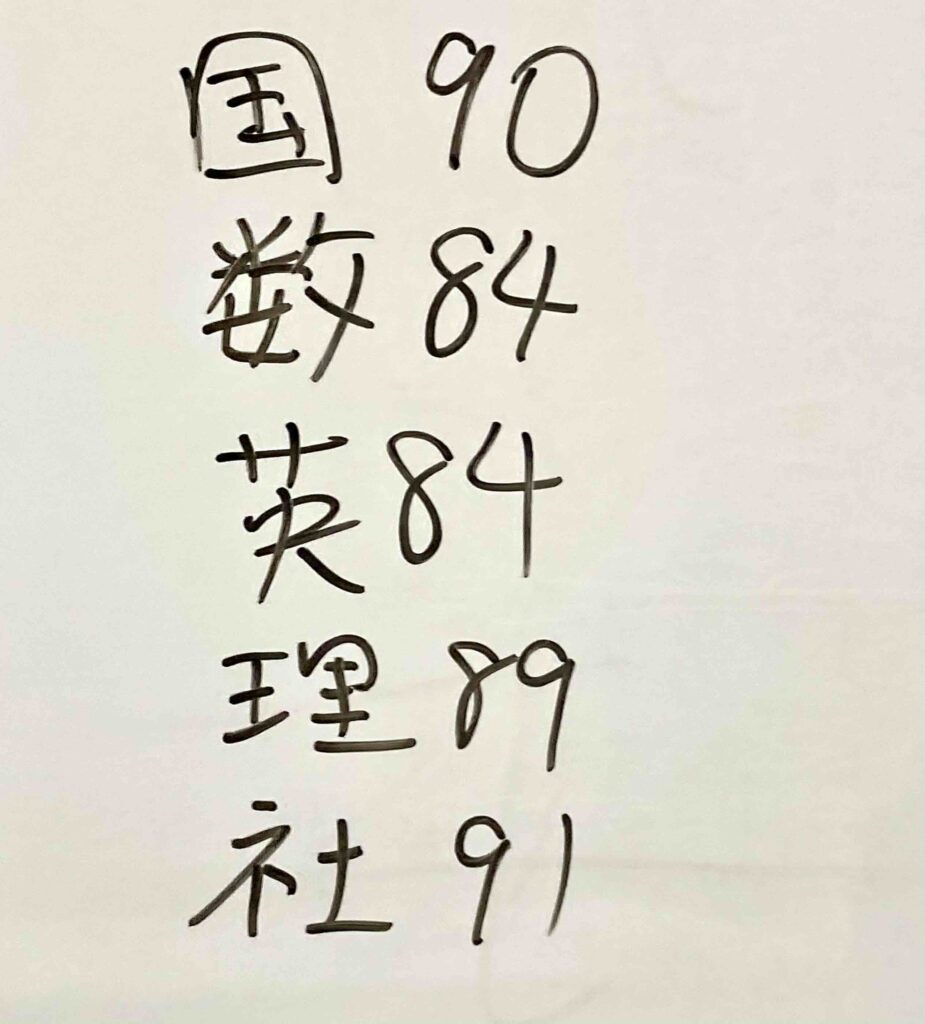 国 90
数 84
英 84
理 89
社 91